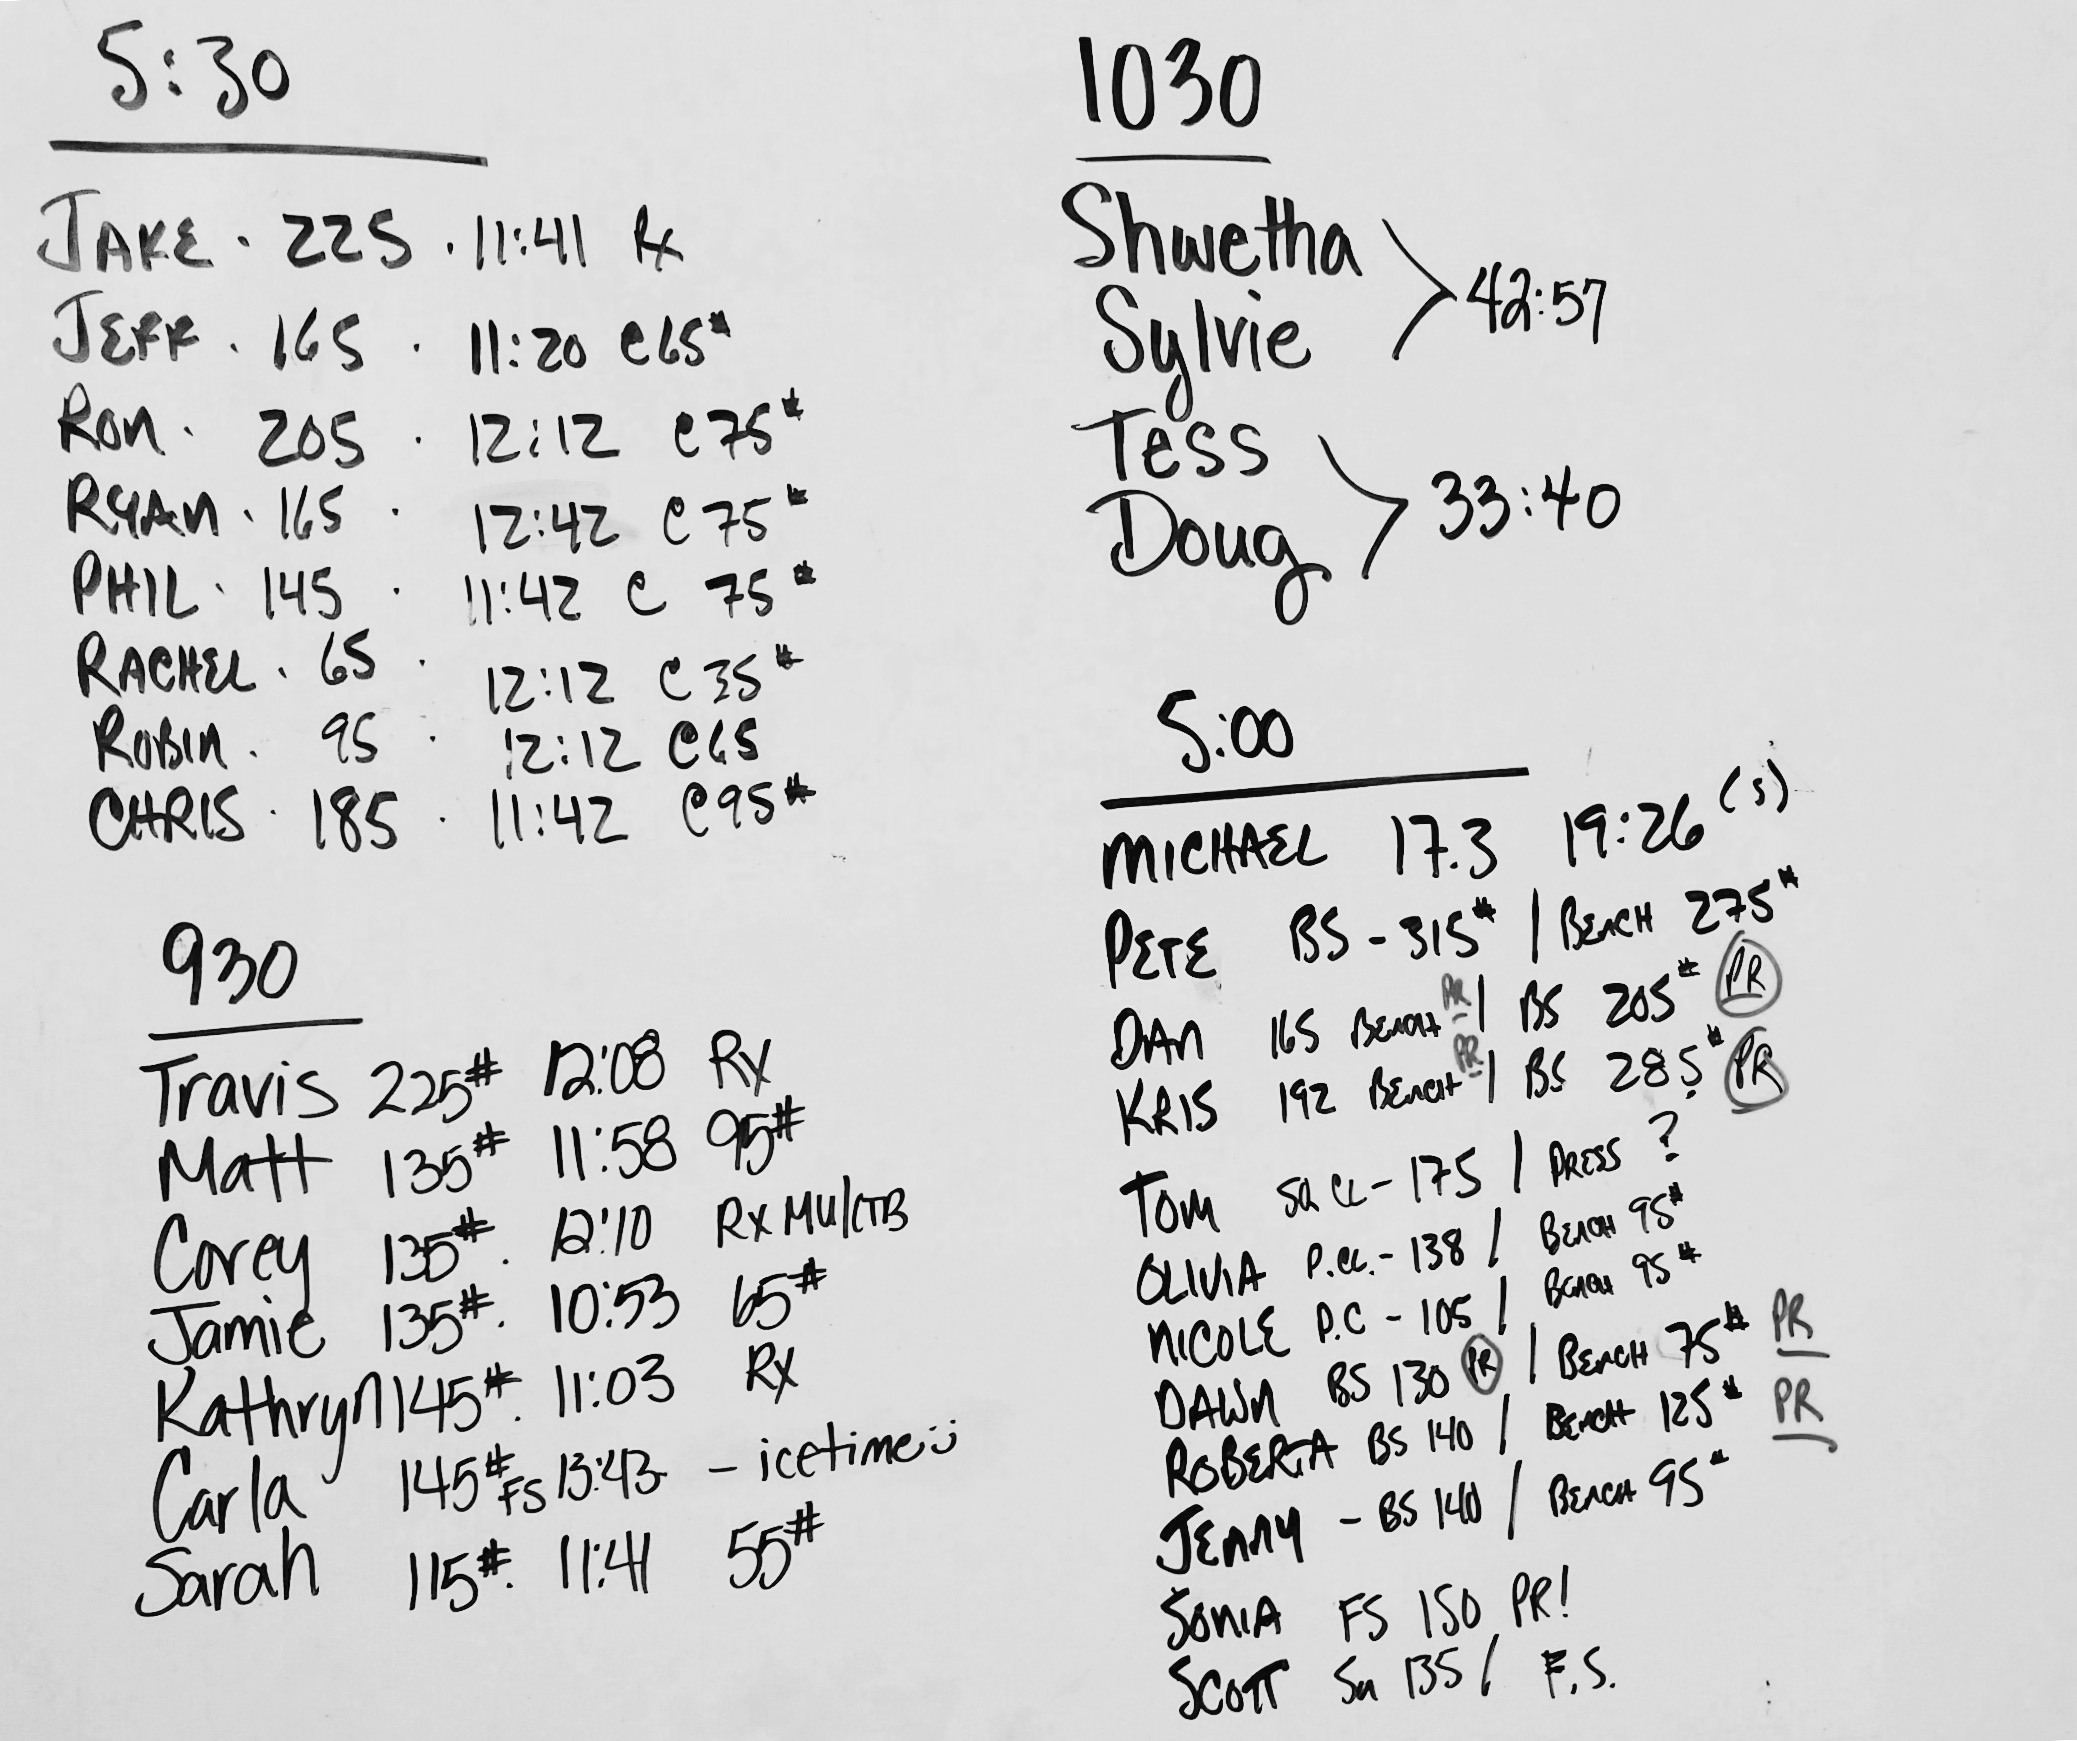 5:30
JAKE · 225 · 11:41 Rx
JEFF · 165 · 11:20 C65#
RON · 205 · 12:12 C75#
RYAN · 165 · 12:42 C75#
PHIL · 145 · 11:42 C 75#
RACHEL · 65 · 12:12 C35#
ROBIN · 95 · 12:12 C65
CHRIS · 185 · 11:42 C95#
930
Travis 225# 12:08 Rx
Matt 135# 11:58 95#
Corey 135#. 12:10 Rx MU/CTB
Jamie 135#. 10:53 65#
Kathryn 145#. 11:03 Rx
Carla 145# FS 13:43 - icetime :)
Sarah 115#. 11:41 55#
1030
Shwetha
Sylvie > 42:57
Tess
Doug > 33:40
5:00
MICHAEL 17.3 19:26 (s)
PETE BS - 315# / BENCH 275#
DAN 165 BENCH PR / BS 205# PR
KRIS 192 BENCH PR / BS 285# PR
TOM SQ CL - 175 / PRESS ?
OLIVIA P.CL. - 138 / BENCH 95#
NICOLE P.C - 105 / BENCH 95#
DAWN BS 130 PR / BENCH 75# PR
ROBERTA BS 140 / BENCH 125# PR
JENNY - BS 140 / BENCH 95#
SONIA FS 150 PR!
SCOTT Sn 135 / F.S.